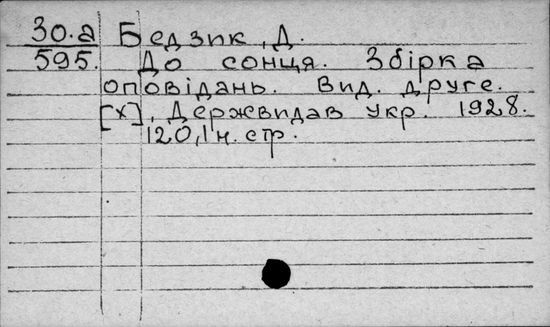 30.а Бедзик, Д.
595. До сонця. Збірка
оповідань. Вид. друге.
[X], Держвидав Укр. 1928.
120, 1 н. стр.